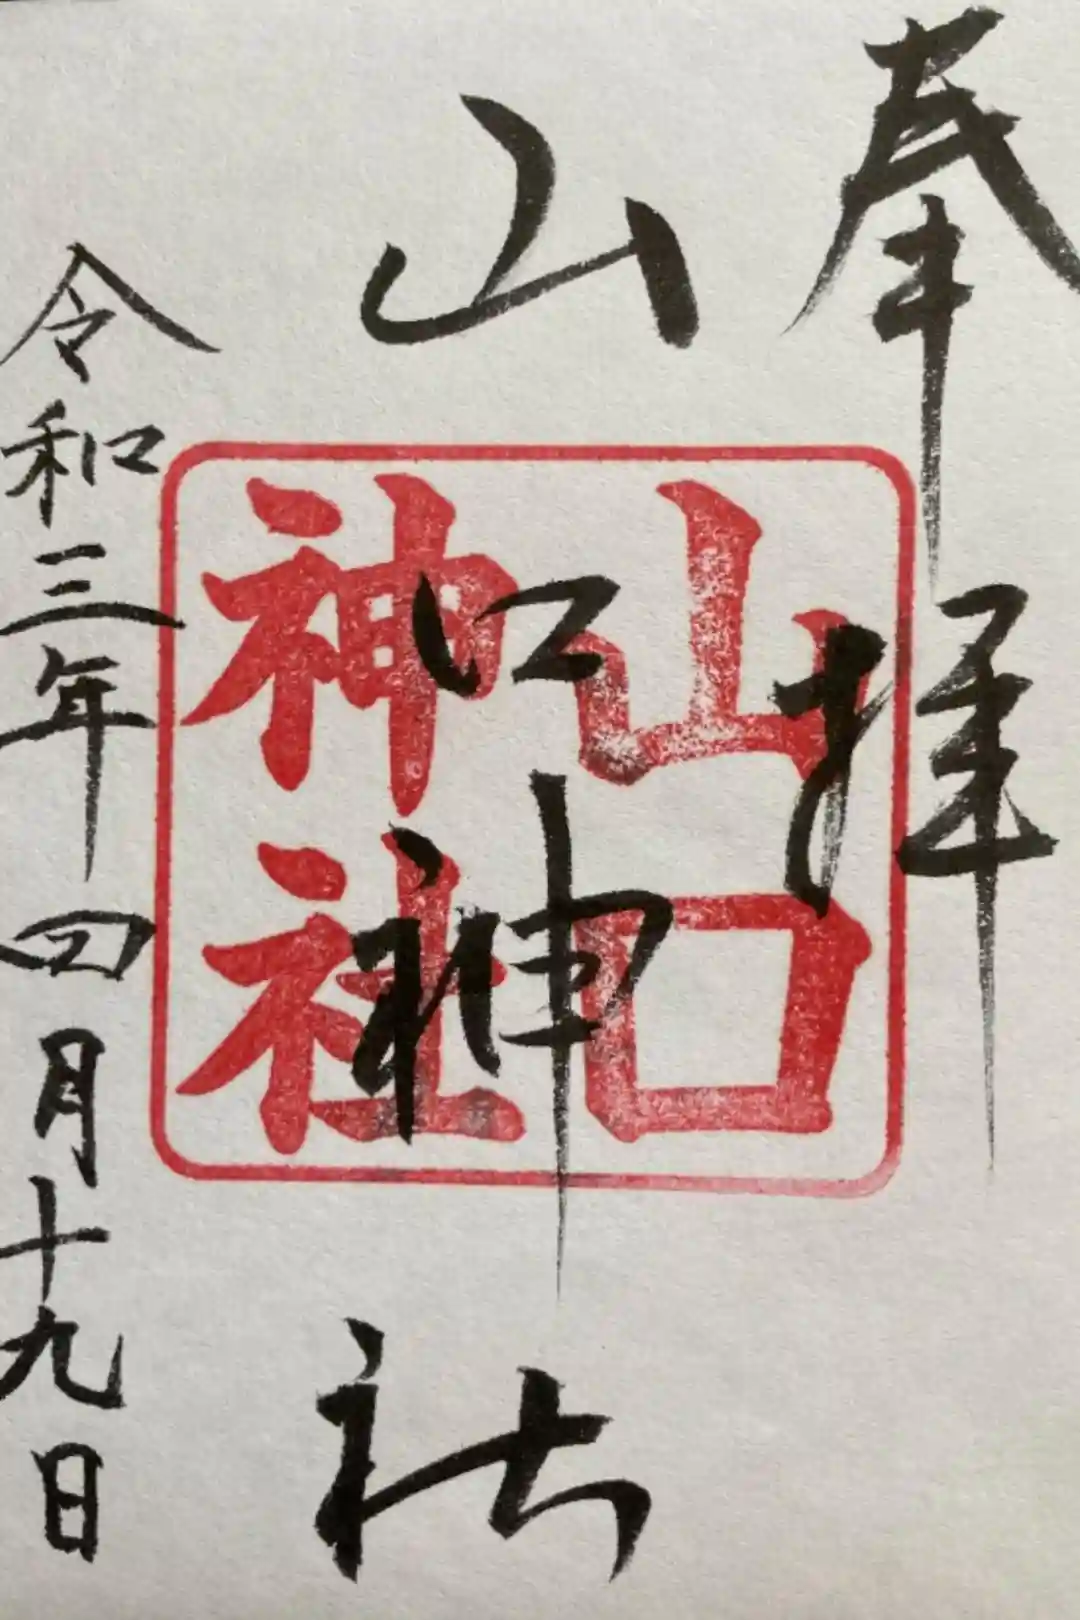 奉拝
山口神社
山口
神社
令和三年四月十九日